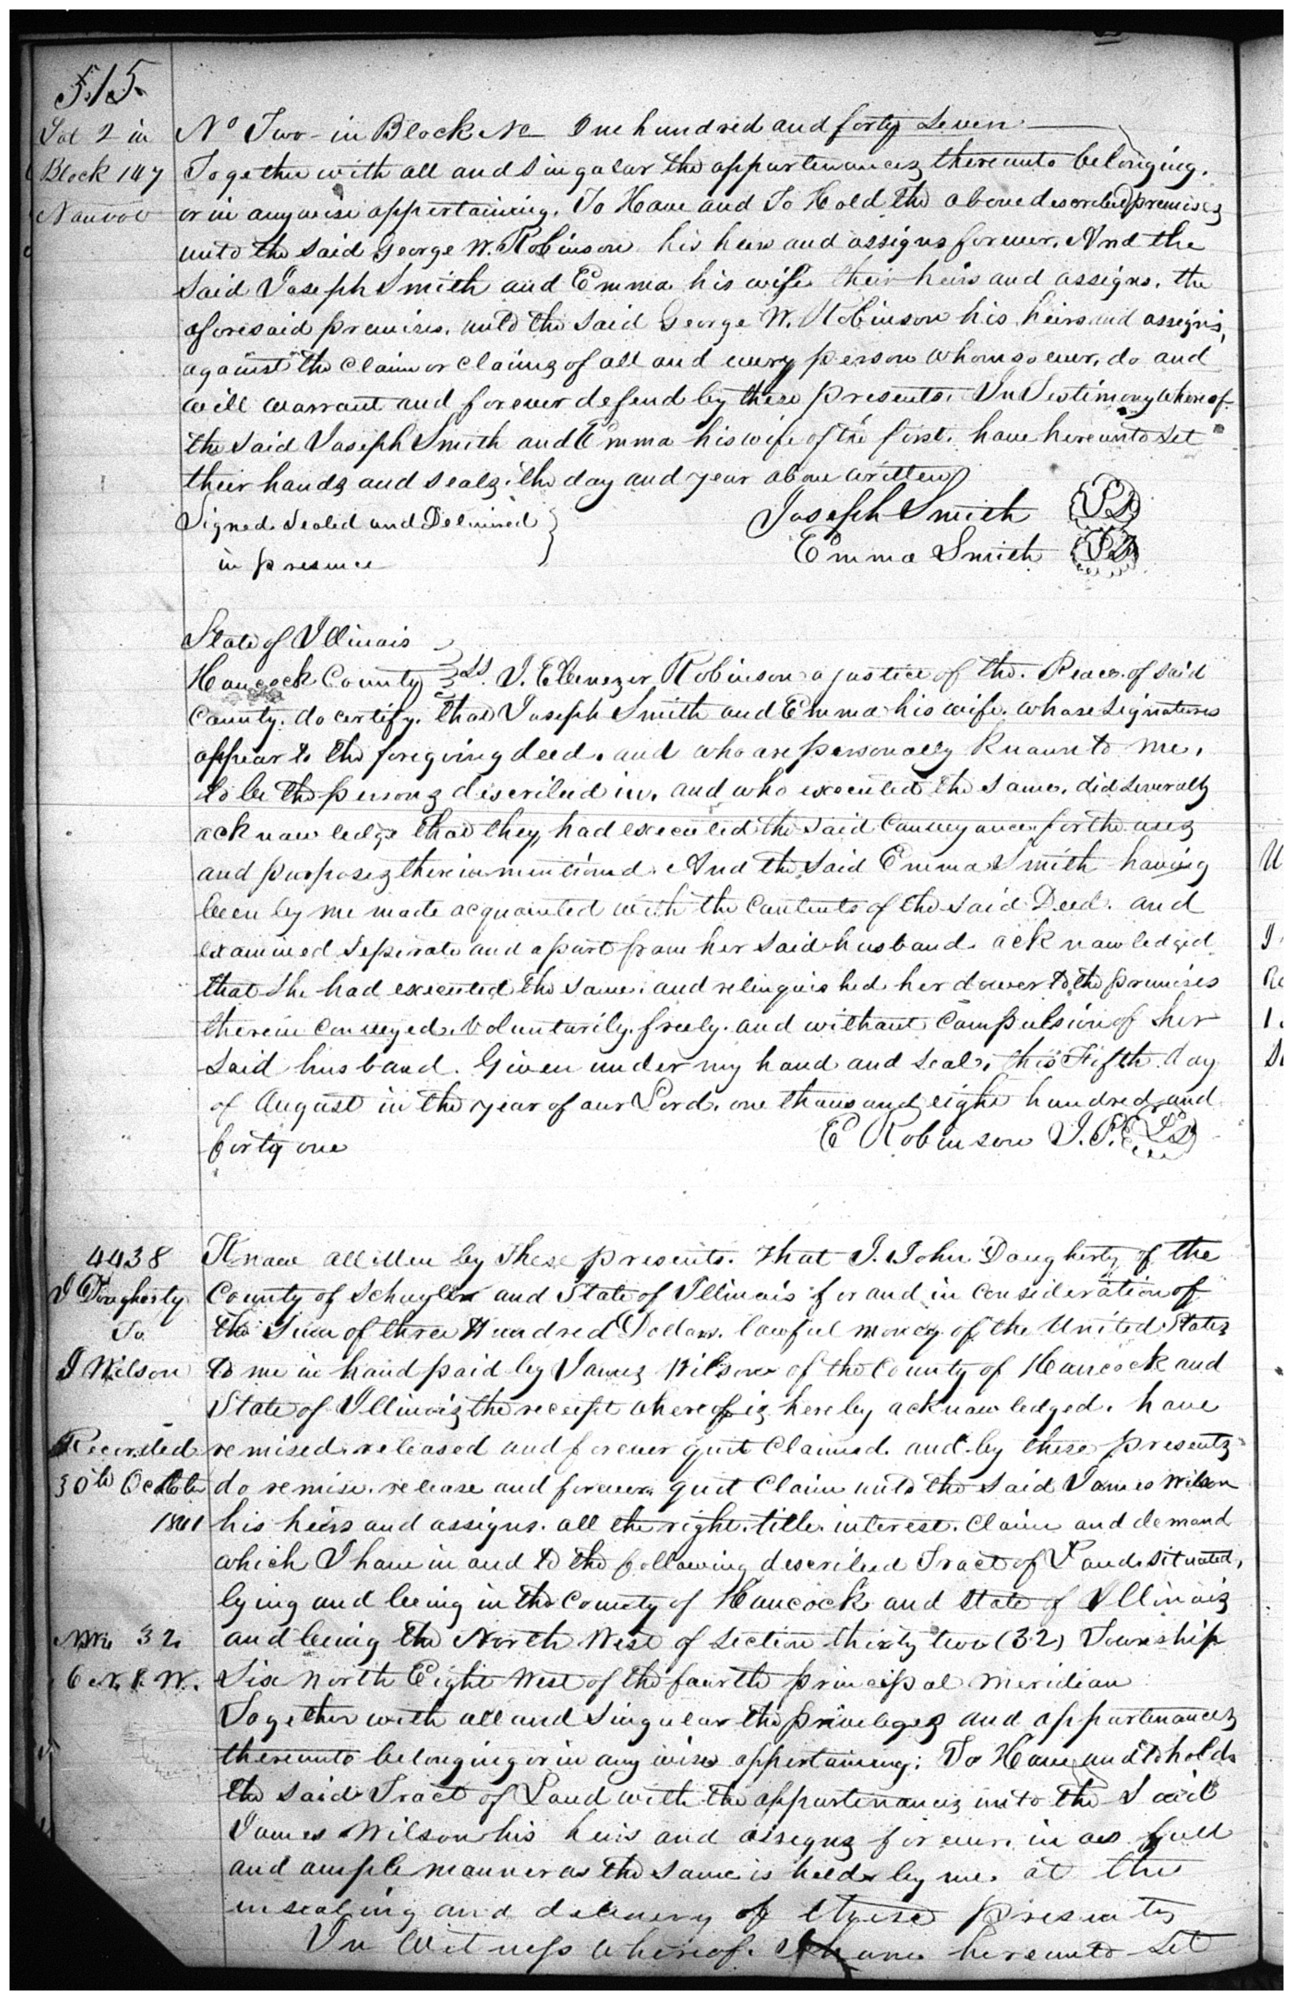 515.
Lot 2 in
Block 147
Nauvoo
No Two in Block No One hundred and forty seven
Together with all and Singular the appurtenances thereunto belonging.
or in anywise appertaining. To Have and To Hold the above described premises
unto the said George W. Robinson his heirs and assigns forever. And the
said Joseph Smith and Emma his wife their heirs and assigns. the
aforesaid premises. unto the said George W. Robinson his heirs and assigns,
against the claim or claims of all and every person whomsoever, do and
will warrant and forever defend by these presents. In Testimony whereof
the said Joseph Smith and Emma his wife of the first. have hereunto set
their hands and seals. the day and year above written
Signed Sealed and Delivered
in presence
Joseph Smith LS
Emma Smith LS
State of Illinois
Hancock County ss. I. Ebenezer Robinson a justice of the. Peace. of said
County. do certify. that Joseph Smith and Emma his wife. whose signatures
appear to the foregoing deed. and who are personally known to me.
to be the persons described in. and who executed the same. did severally
acknowledge that they, had executed the said Conveyance for the uses
and purposes therein mentioned. And the said Emma Smith having
been by me made acquainted with the contents of the said Deed. and
examined Seperate and apart from her said husband. acknowledged
that she had executed the same. and relinquished her dower to the premises
therein conveyed. Voluntarily. freely. and without compulsion of her
said husband. Given under my hand and seal. this Fifth day
of August in the year of our Lord. one thousand eight hundred and
forty one
E Robinson J. P. LS
4438
J Dougherty
To
J Wilson
Recorded
30th October
1841
NW 32
6 N. 8 W.
Know all Men by These presents. that I. John Daugherty of the
County of Schuyler and State of Illinois for and in consideration of
the Sum of three Hundred Dollars. lawful money of the United States
to me in hand paid by James Wilson of the County of Hancock and
State of Illinois the receipt whereof is hereby acknowledged. have
remised. released and forever quit claimed. and by these presents
do remise. release and forever quit Claim unto the said James Wilson
his heirs and assigns. all the right. title. interest. Claim and demand
which I have in and to the following described Tract of Land situated,
lying and being in the County of Hancock and State of Illinois
and being the North West of section thirty two (32) Township
Six North Eight West of the fourth principal meridian
Together with all and Singular the privileges and appurtenances
thereunto belonging or in any wise appertaining: To Have and to hold
the said Tract of Land with the appurtenances unto the Said
James Wilson his heirs and assigns forever. in as full
and ample manner as the same is held by me. at the
ensealing and delivery of these presents
In Witness whereof. I have hereunto set